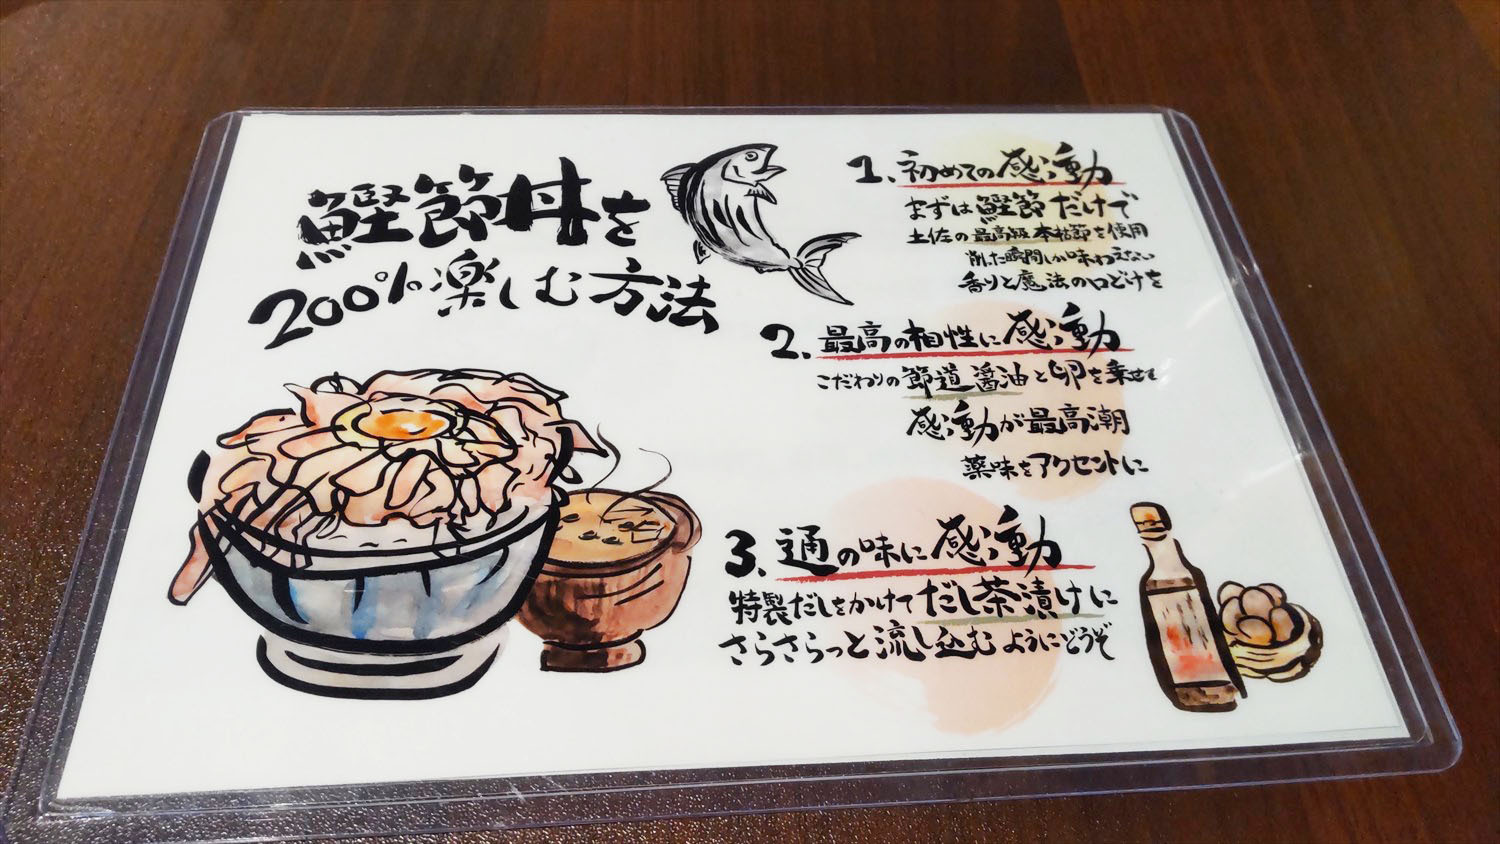 鰹節丼を
200%楽しむ方法
1. 初めての感動
まずは鰹節だけで
土佐の最高級本枯節を使用
削た瞬間しか味わえない
香りと魔法の口どけを
2. 最高の相性に感動
こだわりの節道醤油と卵を乗せて
感動が最高潮
薬味をアクセントに
3. 通の味に感動
特製だしをかけてだし茶漬けに
さらさらっと流し込むようにどうぞ